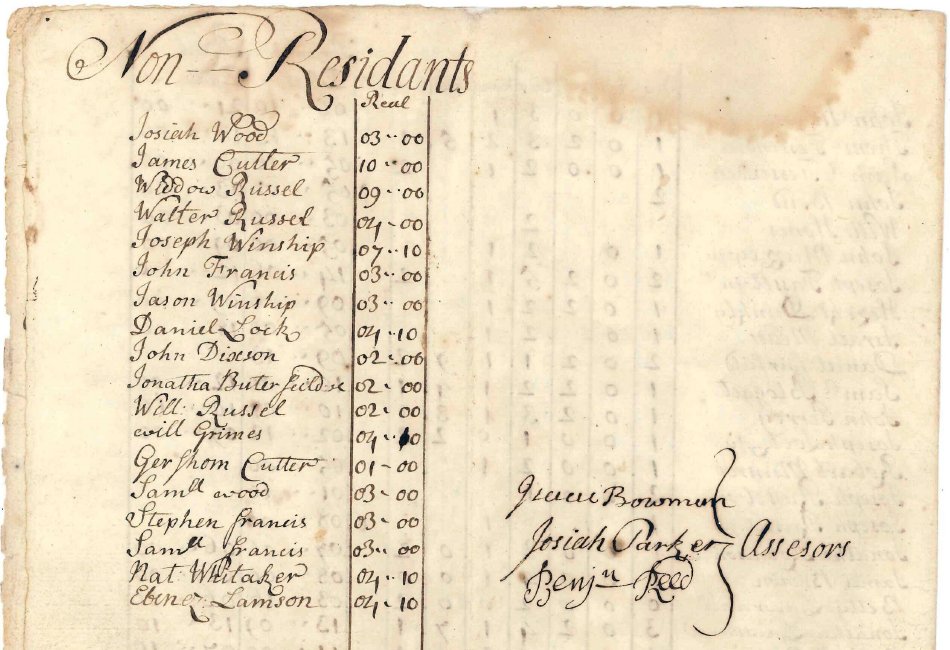 Non-Residants
Real
Josiah Wood 03--00
James Cutter 10--00
Widdow Russel 09--00
Walter Russel 04--00
Joseph Winship 07--10
John Francis 03--00
Jason Winship 03--00
Daniel Lock 04--10
John Dixson 02--00
Jonatha Buterfield 02--00
Will: Russel 02--00
will Grimes 04--10
Gershom Cutter 01--00
Samll wood 03--00
Stephen francis 03--00
Samll francis 03--00
Nat Whitaker 04--10
Ebener Lamson 04--10
Isaac Bowman
Josiah Parker Assesors
Benjn Reed